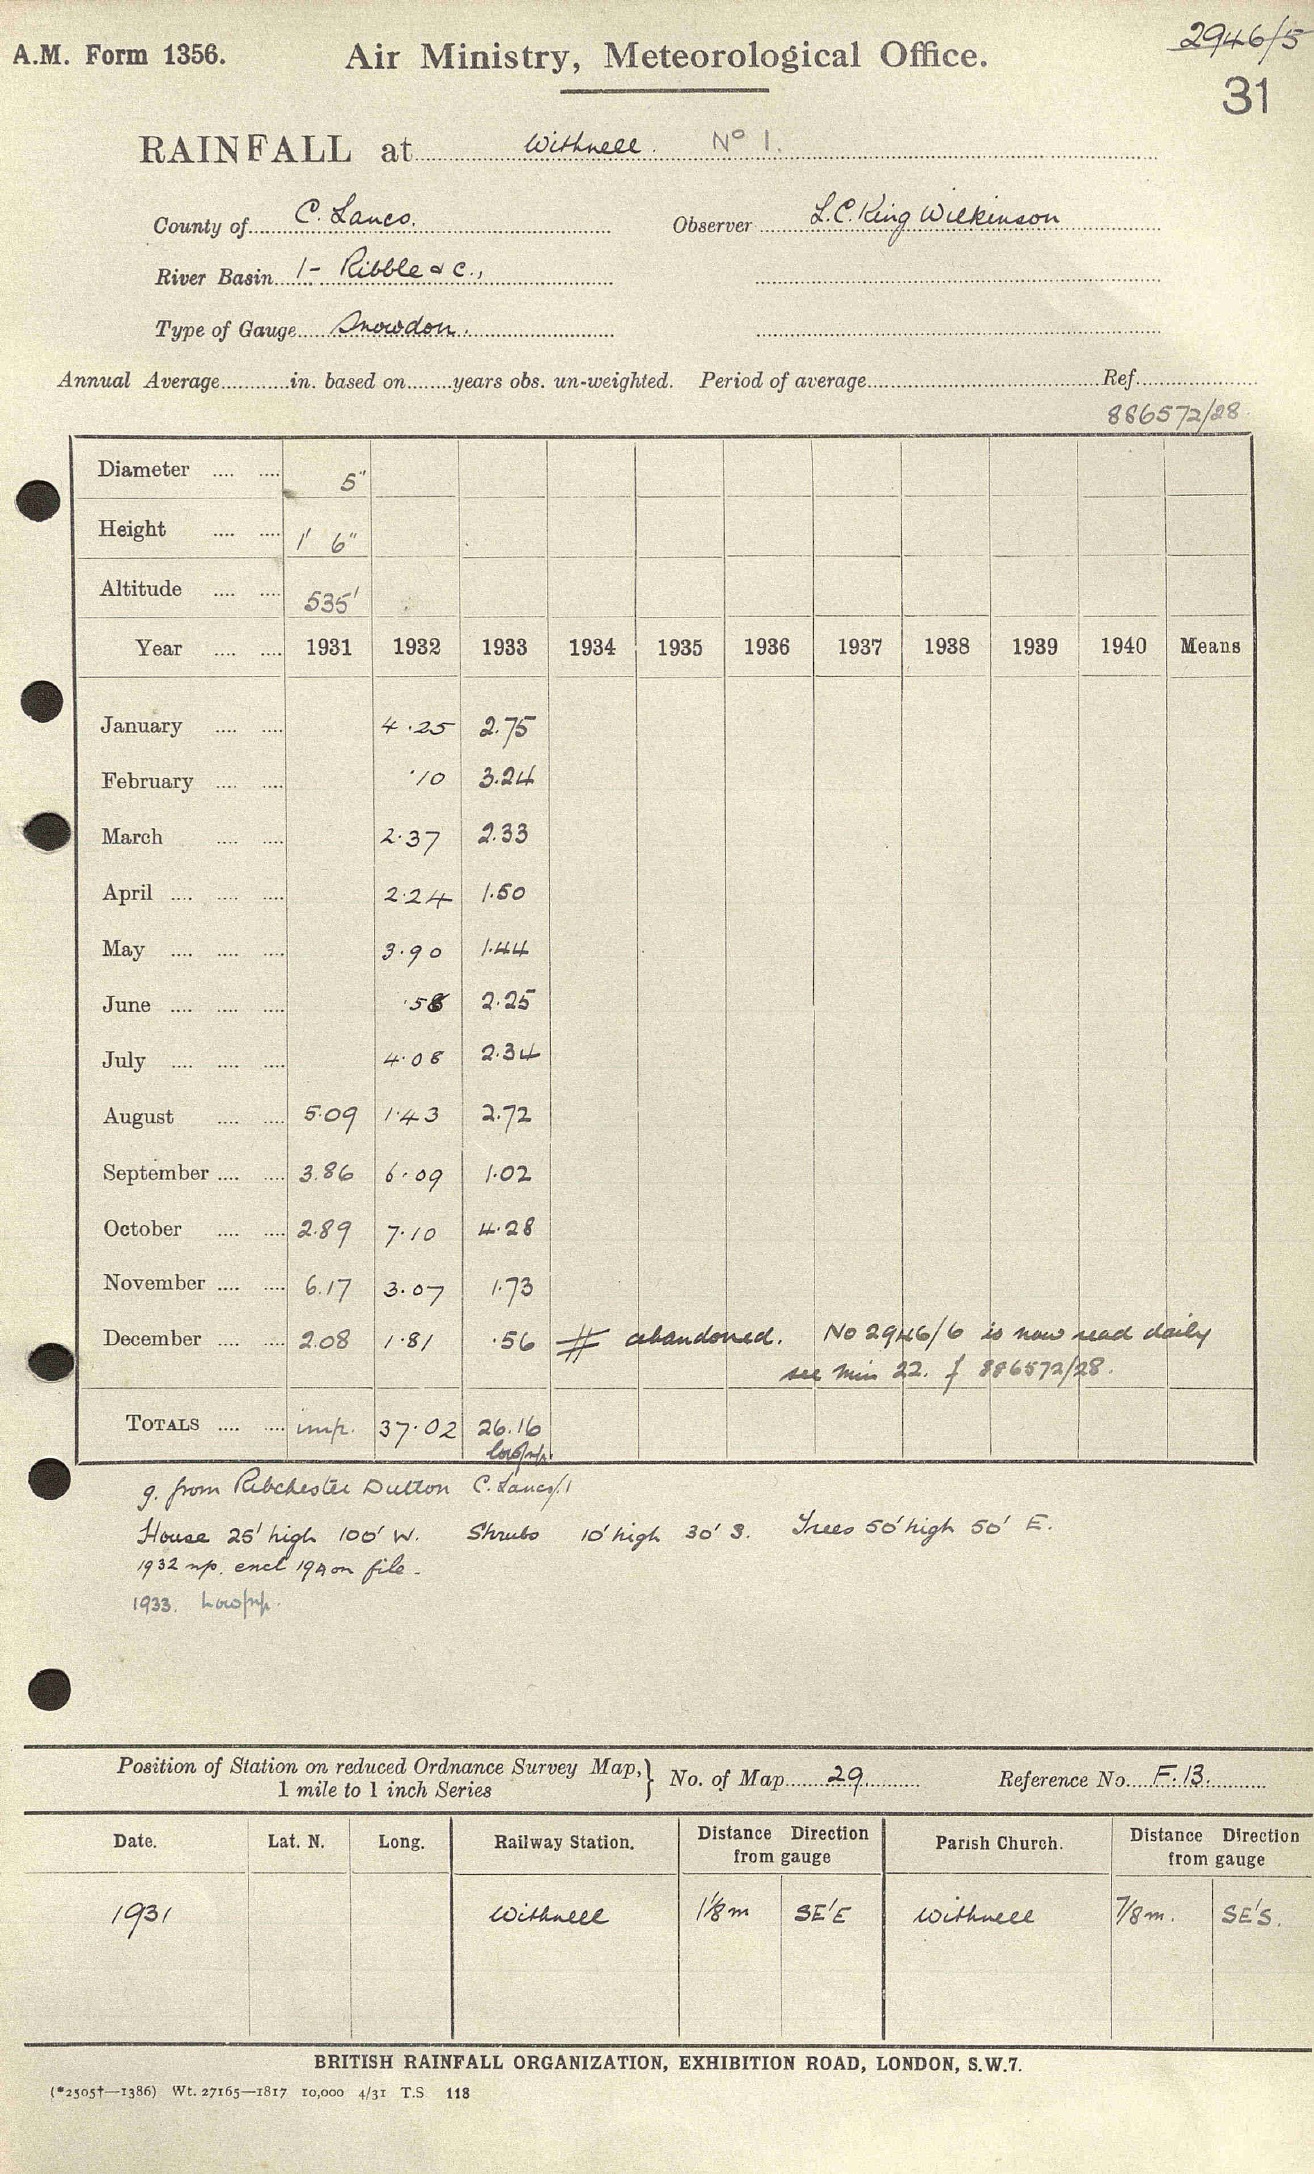 2946/5
A.M. Form 1356. Air Ministry, Meteorological Office.
31
RAINFALL at Withnell. No 1.
County of C. Lancs. Observer L.C. King Wilkinson
River Basin 1- Ribble & c.,
Type of Gauge Snowdon.
Annual Average in. based on years obs. un-weighted. Period of average Ref.
886572/28.
Diameter 5"
Height 1' 6"
Altitude 535'
Year 1931 1932 1933 1934 1935 1936 1937 1938 1939 1940 Means
January 4.25 2.75
February .10 3.24
March 2.37 2.33
April 2.24 1.50
May 3.90 1.44
June .58 2.25
July 4.08 2.34
August 5.09 1.43 2.72
September 3.86 6.09 1.02
October 2.89 7.10 4.28
November 6.17 3.07 1.73
December 2.08 1.81 .56 # abandoned. No 2946/6 is now read daily
see min 22. of 886572/28.
TOTALS imp. 37.02 26.16
low/np.
g. from Ribchester Dutton C. Lancs/1
House 25' high 100' W. Shrubs 10' high 30' S. Trees 50' high 50' E.
1932 np. encl 19A on file.
1933. Low/np.
Position of Station on reduced Ordnance Survey Map, 1 mile to 1 inch Series } No. of Map 29 Reference No. F.13.
Date. Lat. N. Long. Railway Station. Distance Direction from gauge Parish Church. Distance Direction from gauge
1931 Withnell 1 1/8 m SE'E Withnell 7/8 m. SE'S.
BRITISH RAINFALL ORGANIZATION, EXHIBITION ROAD, LONDON, S.W.7.
(*2505†—1386) Wt. 27165—1817 10,000 4/31 T.S 118